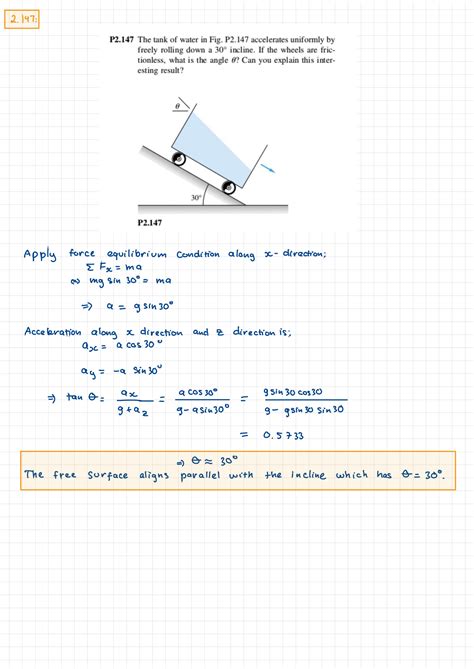 2.147:
P2.147 The tank of water in Fig. P2.147 accelerates uniformly by
freely rolling down a 30° incline. If the wheels are fric-
tionless, what is the angle θ? Can you explain this inter-
esting result?
θ
30°
P2.147
Apply force equilibrium condition along x-direction;
Σ Fx = ma
∞ mg sin 30° = ma
⇒ a = g sin 30°
Acceleration along x direction and z direction is;
ax = a cos 30°
ay = -a sin 30°
⇒ tan θ = ax / g + az = a cos 30° / g - a sin 30° = g sin 30 cos 30 / g - g sin 30 sin 30
= 0.5733
⇒ θ ≈ 30°
The free surface aligns parallel with the incline which has θ = 30°.